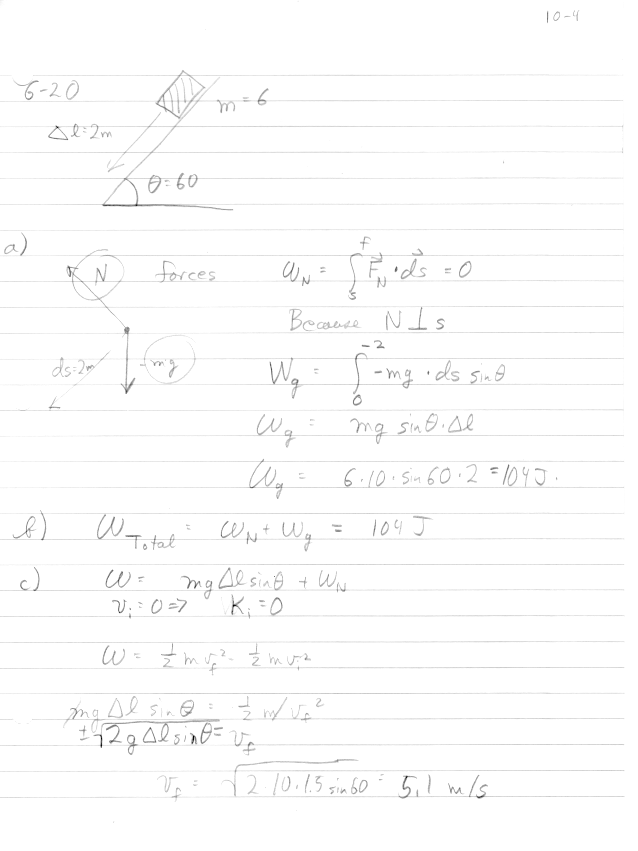 10-4
6-20
m = 6
Δl = 2m
θ = 60
a)
N forces
W_N = ∫_s^f F⃗_N · d⃗s = 0
Because N ⊥ s
ds = 2m
-mg
W_g = ∫_0^-2 -mg · ds sinθ
W_g = mg sinθ · Δl
W_g = 6 · 10 · sin 60 · 2 = 104 J.
b) W_Total = W_N + W_g = 104 J
c) W = mg Δl sinθ + W_N
v_i = 0 => K_i = 0
W = 1/2 m v_f² - 1/2 m v_i²
mg Δl sinθ = 1/2 m v_f²
±√2g Δl sinθ = v_f
v_f = √2 10 · 1.5 sin 60 = 5.1 m/s